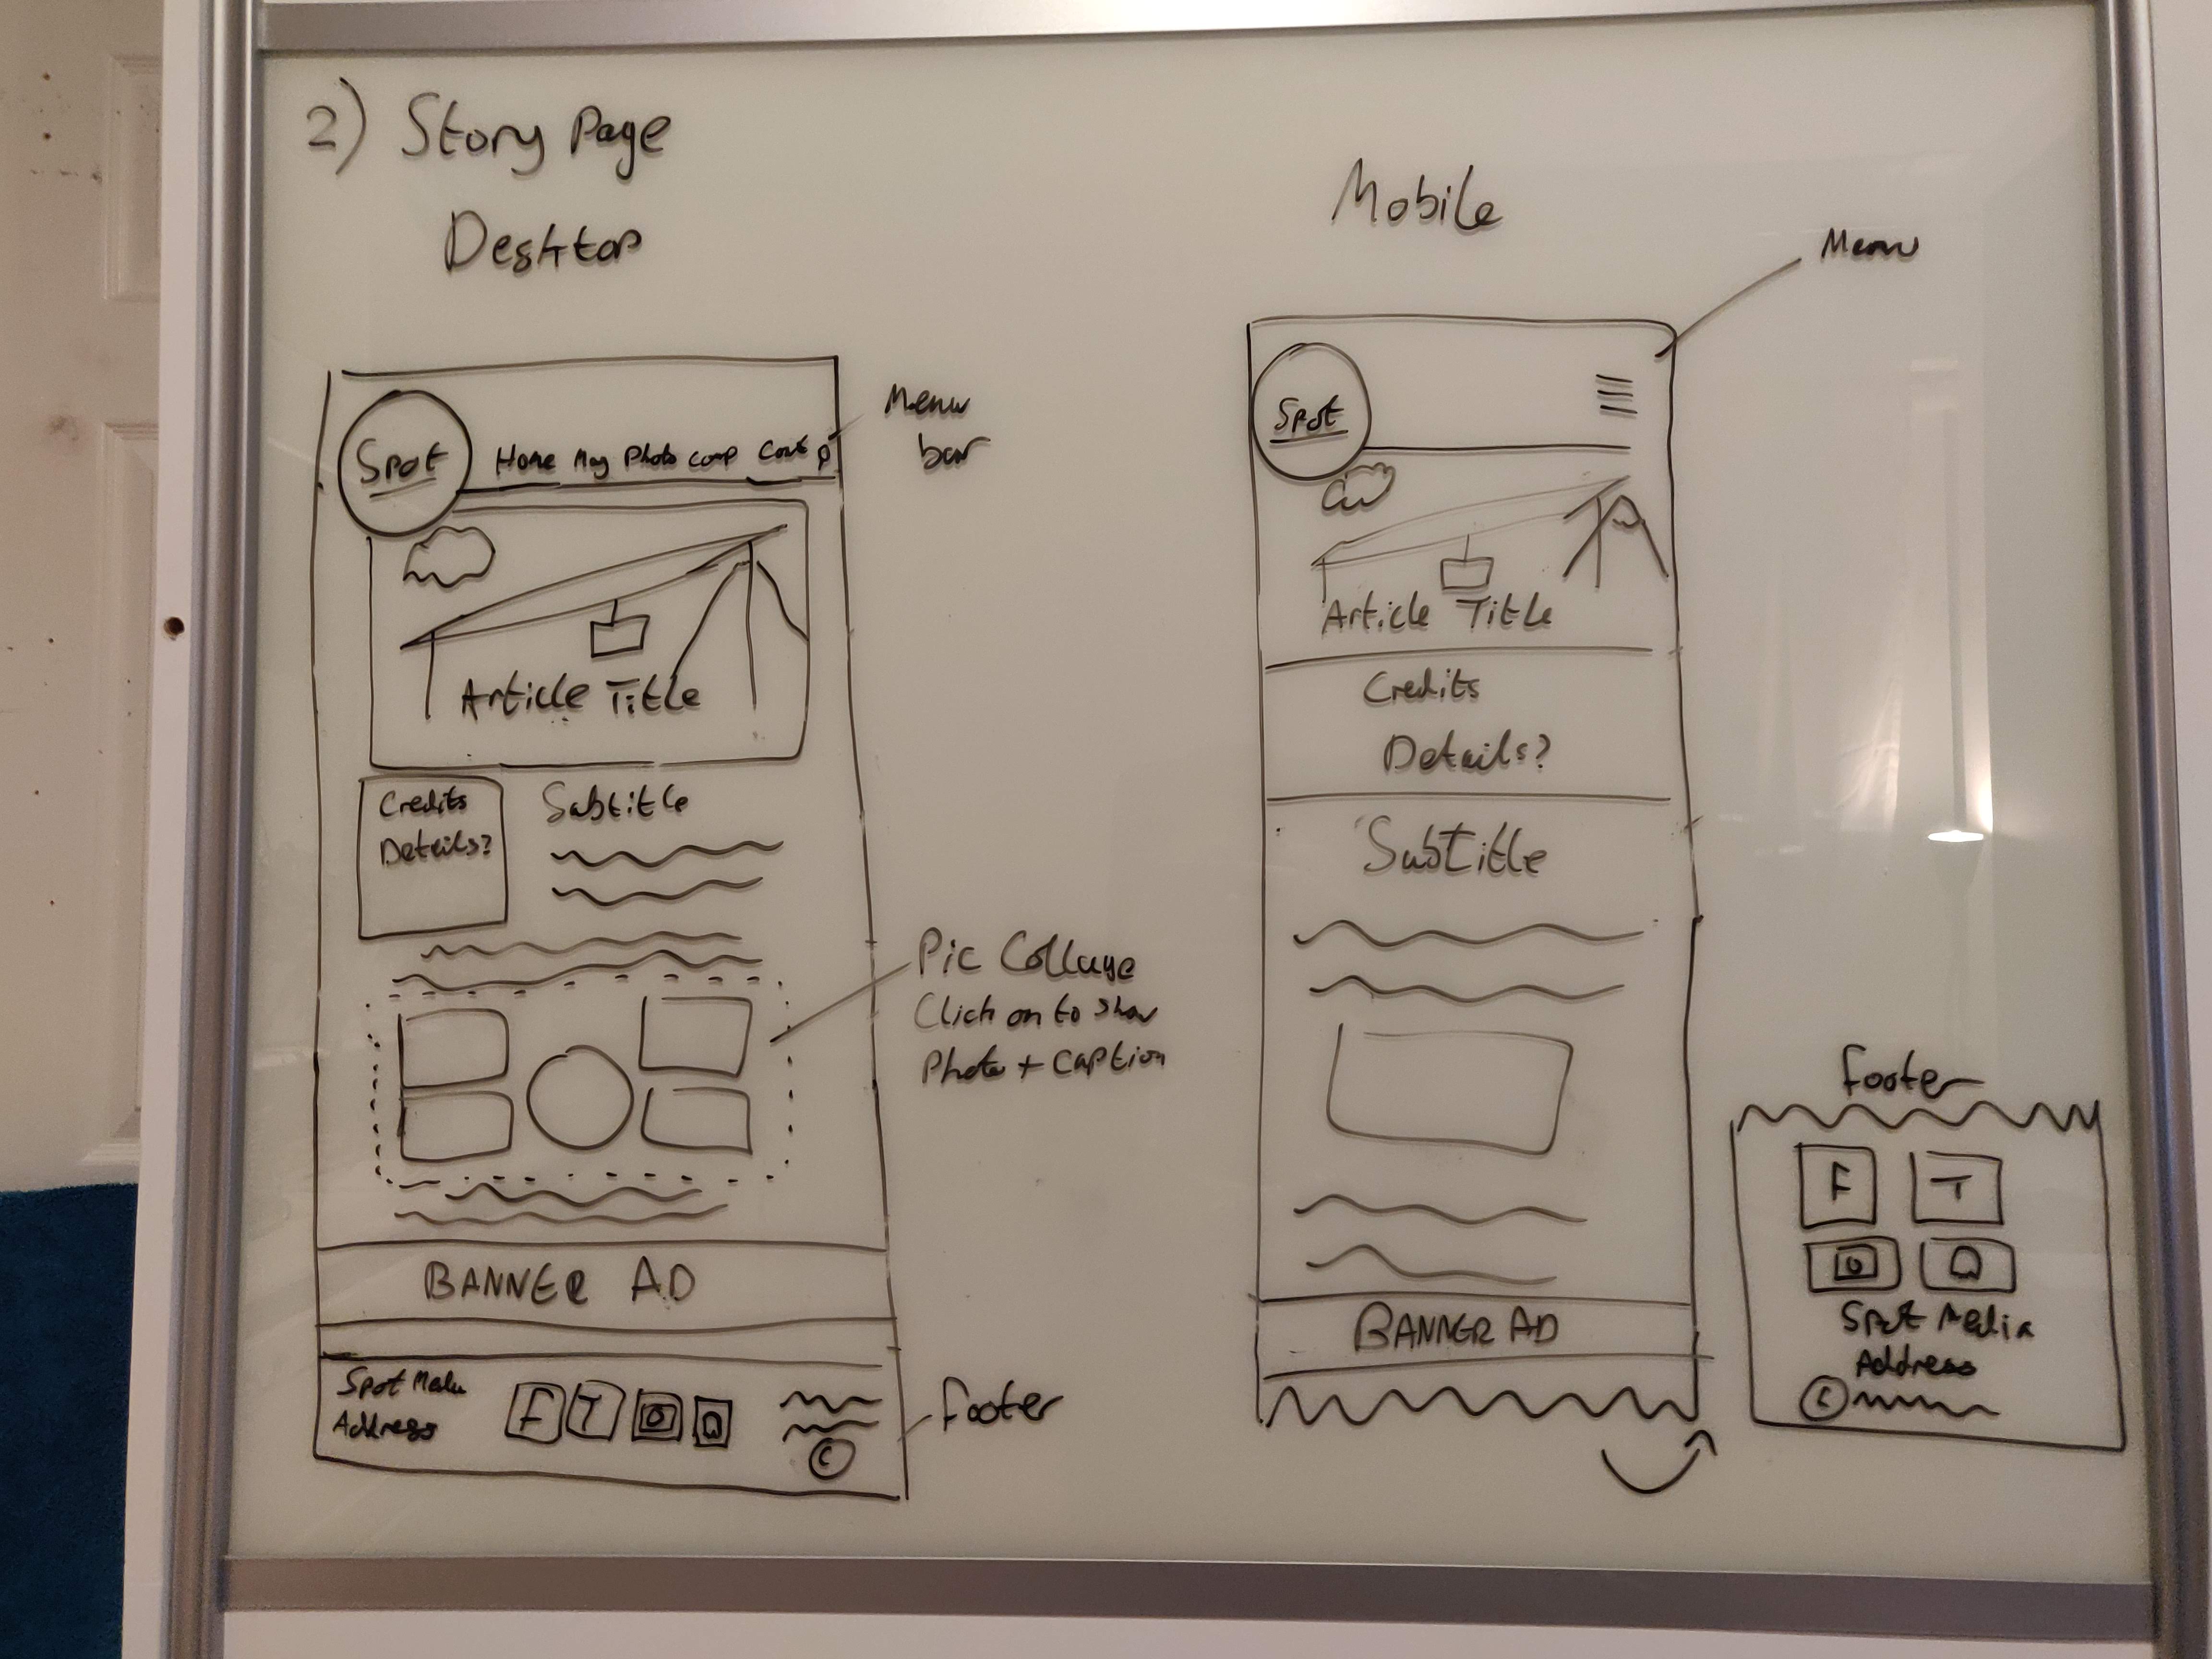 2) Story Page
Desktop
Menu
bar
Spot
Home Mag Photo comp Cont
Article Title
Credits
Details?
Subtitle
Pic Collage
Click on to show
Photo + Caption
BANNER AD
Spot Media
Address
F T
©
Footer
Mobile
Menu
Spot
Article Title
Credits
Details?
Subtitle
BANNER AD
Footer
F T
Spot Media
Address
©